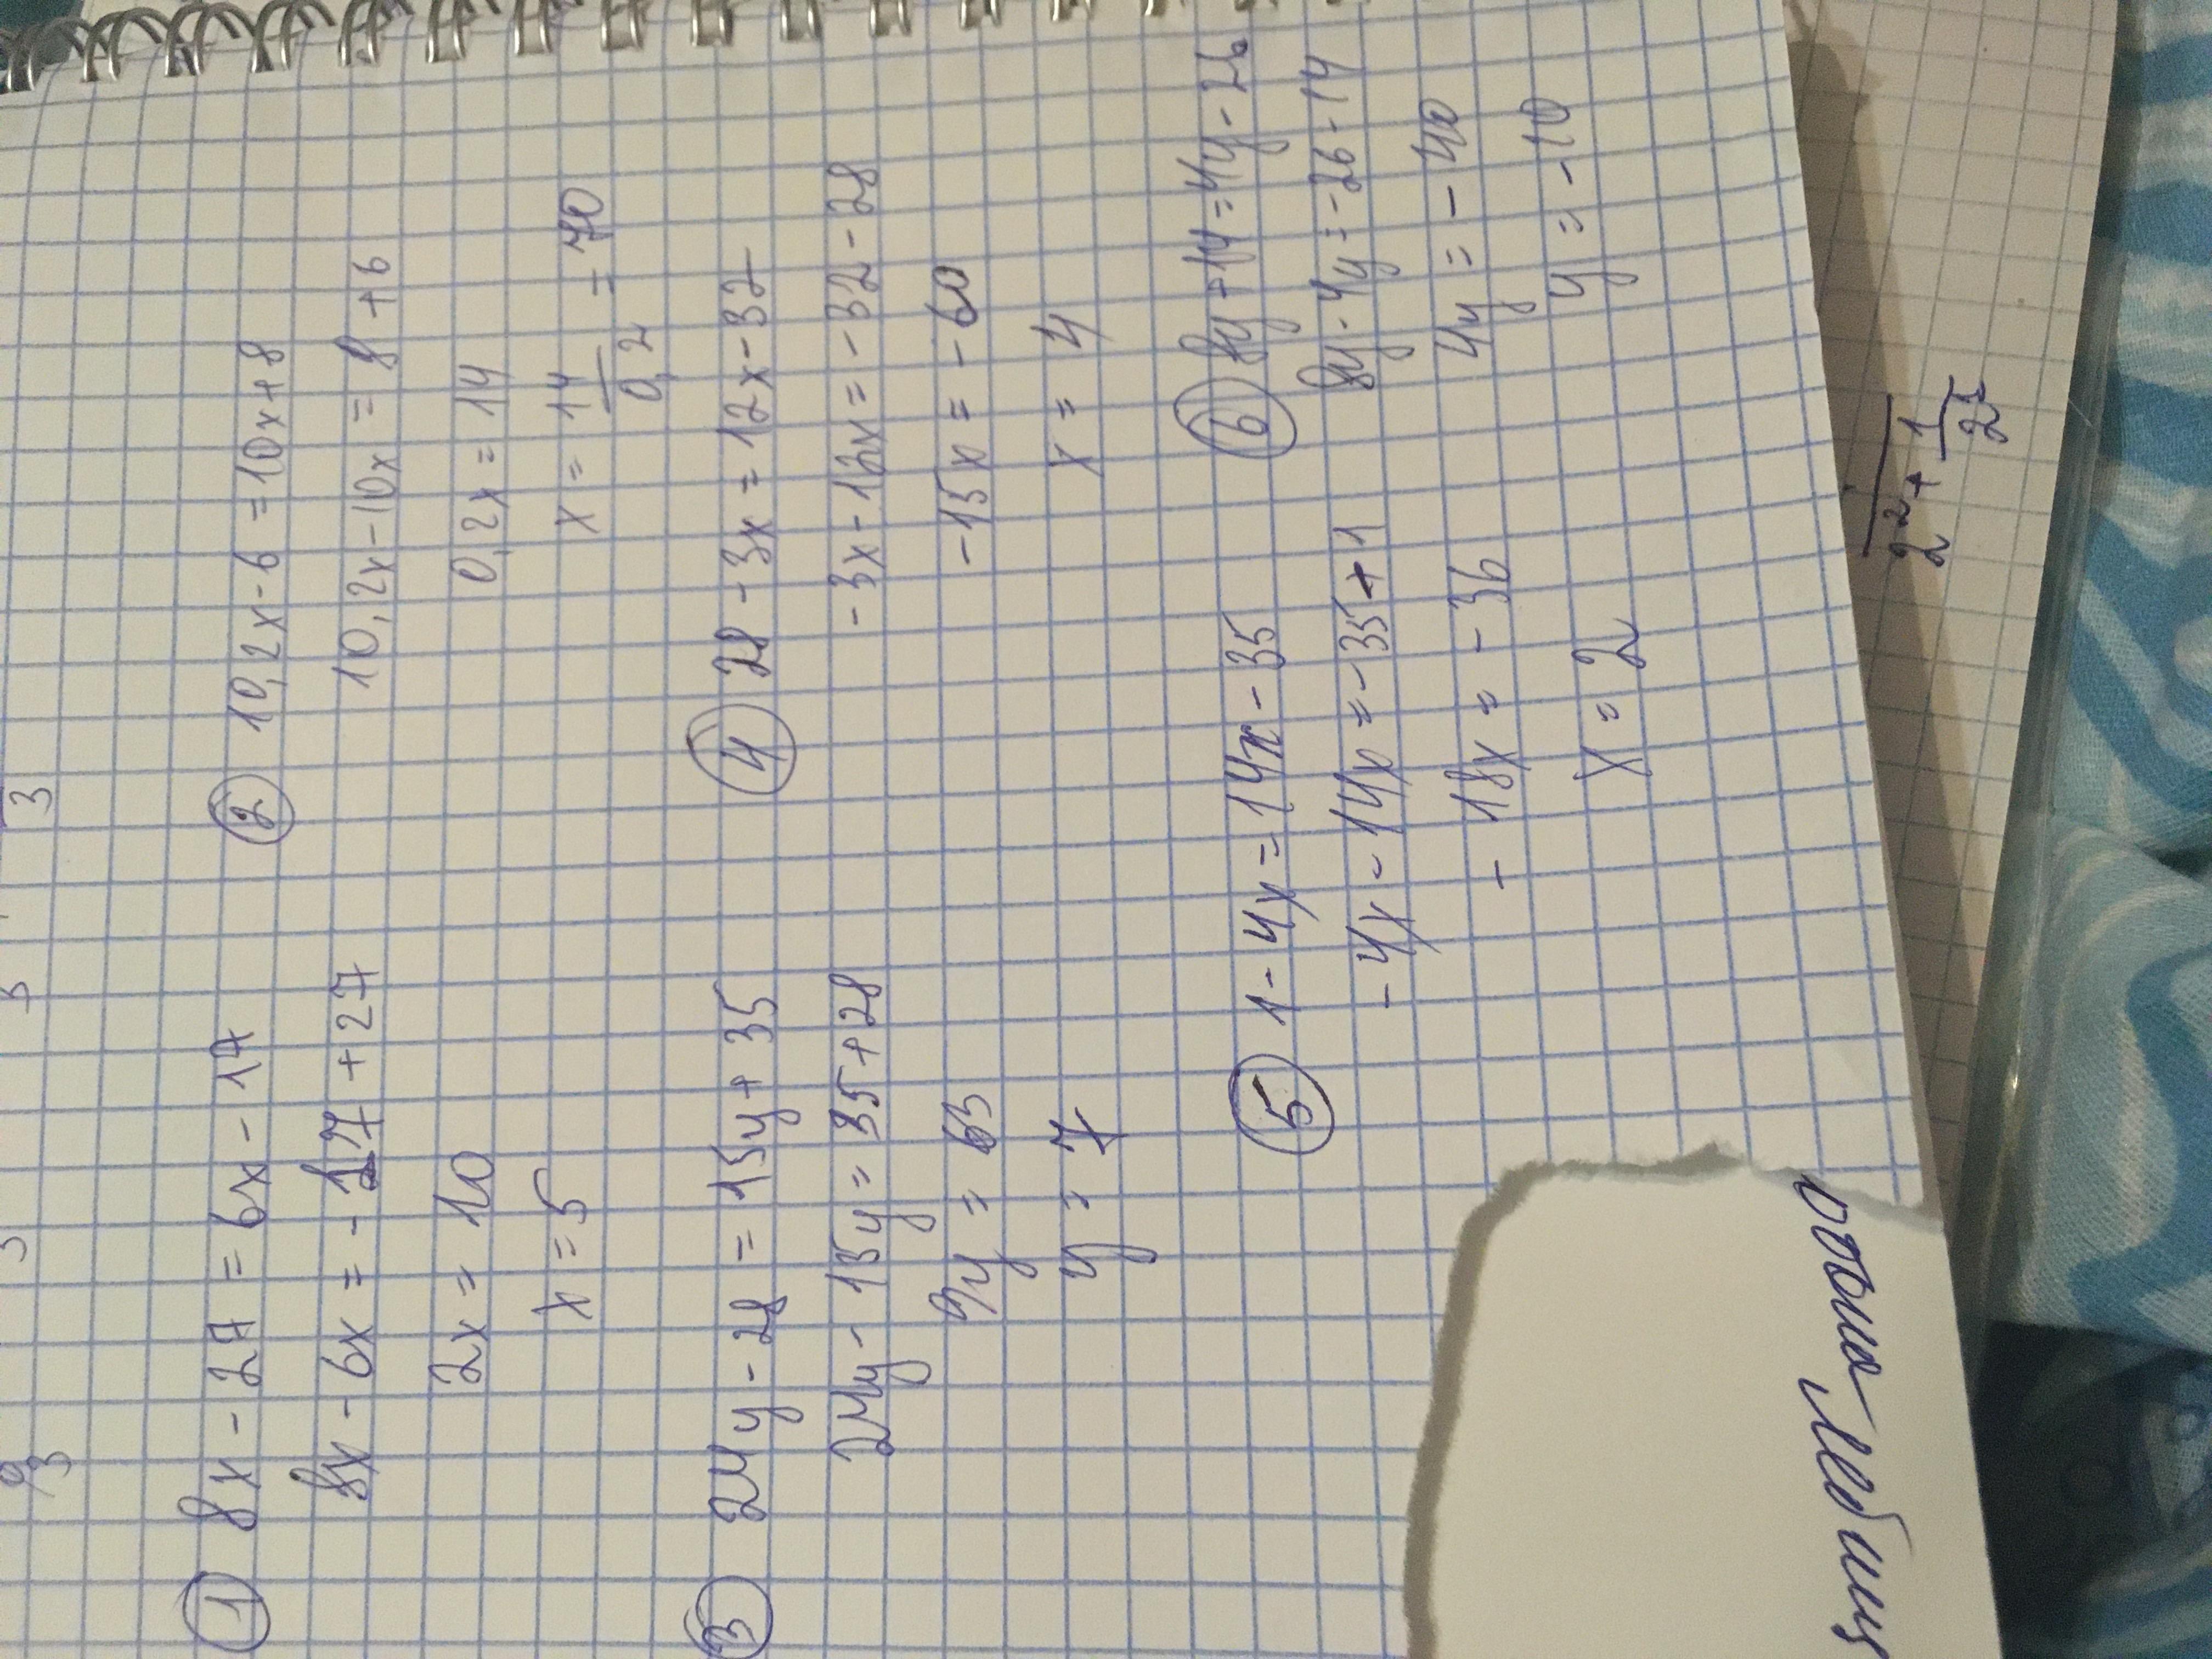 ① 8x - 27 = 6x - 17
8x - 6x = - 17 + 27
2x = 10
x = 5
② 10,2x - 6 = 10x + 8
10,2x - 10x = 8 + 6
0,2x = 14
x = 14/0,2 = 70
③ 24y - 28 = 15y + 35
24y - 15y = 35 + 28
9y = 63
y = 7
④ 28 - 3x = 12x - 32
- 3x - 12x = - 32 - 28
- 15x = - 60
x = 4
⑤ 1 - 4x = 14x - 35
- 4x - 14x = - 35 + 1
- 18x = - 36
x = 2
⑥ 8y + 14 = 4y - 26
8y - 4y = - 26 - 14
4y = - 40
y = - 10